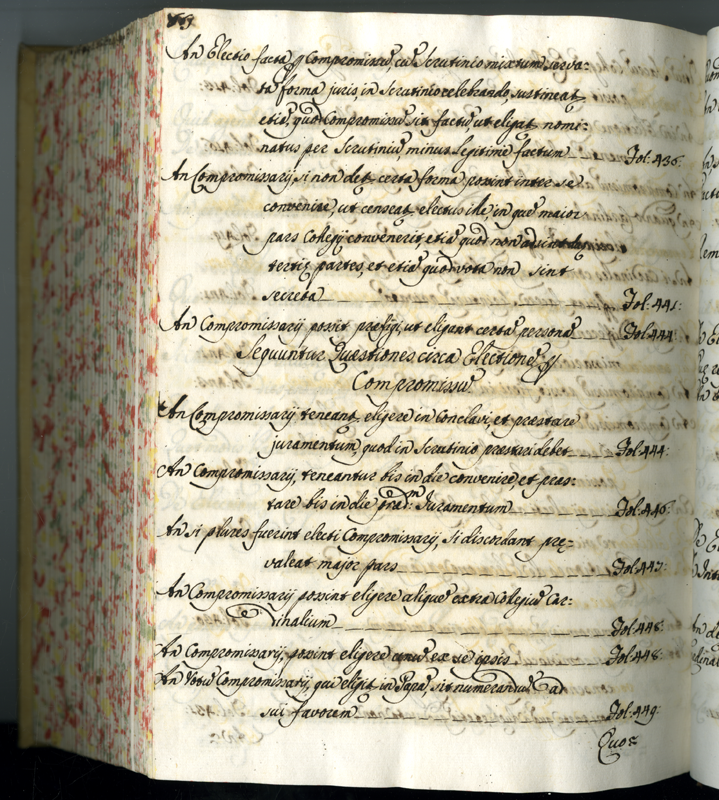 An Electio facta p Compromissũ, cũ Scrutinio mixtum, serva
ta forma juris, in Scrutinio celebrando, sustineat,
etiã, quod Compromissũ sit factũ, ut eligat nomi-
natus per Scrutiniũ, minus legitime factum Fol: 436.
An Compromissarij, si non det certa forma, possint inter se
convenire, ut censeat electus ille, in quẽ maior
pars Collegij convenerit, etiã quod non adsint
tertiẹ partes, et etiã quod vota non sint
secreta Fol: 441:
An Compromissarij possit prefigi, ut eligant certã personã Fol: 444:
Sequuntur Quęstiones circa Electionẽ p
Compromissũ.
An Compromissarij teneant eligere in Conclavi, et prestare
juramentum, quod in Scrutinio prestari debet Fol: 444:
An Compromissarij, teneantur bis in die convenire, et pres-
tare bis in die Juramentum Fol: 446:
An si plures fuerint electi Compromissarij, si discordant prę-
valeat major pars Fol: 447:
An Compromissarij possint eligere aliquẽ extra Collegiũ Car-
dinalium Fol: 448:
An Compromissarij, possint eligere unũ ex se ipsis Fol: 448:
An Votũ Compromissarij, qui eligit in Papã, sit numerandũ ad
sui favorem Fol: 449:
Quo-